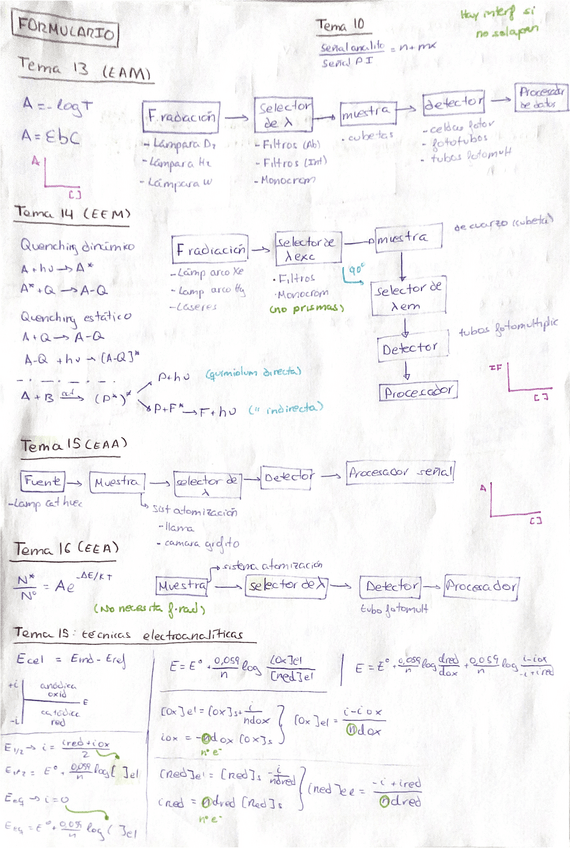 FORMULARIO
Tema 10
señal analito / señal PI = n + mx
Hay interf si
no solapan
Tema 13 (EAM)
A = -logT
A = εbC
A
[ ]
F. radiación → Selector de λ → muestra → detector → Procesador de datos
- Lámpara D2
- Lámpara W
- Filtros (Ab)
- Filtros (Int)
- Monocrom
- cubetas
- celdas fotov
- fototubos
- tubos fotomult
Tema 14 (EEM)
Quenching dinámico
A + hν → A*
A* + Q → A-Q
Quenching estático
A + Q → A-Q
A-Q + hν → (A-Q)*
A + B → (P*)
P + hν (quimiolum directa)
P + F* → F + hν (" indirecta)
F radiación → selector de λ exc → muestra
de cuarzo (cubeta)
- Lámp arco Xe
- Lamp arco Hg
- Láseres
- Filtros
- Monocrom
(no prismas)
90°
selector de λ em
Detector
tubos fotomultiplic
Procesador
IF
[ ]
Tema 15 (EAA)
Fuente → Muestra → selector de λ → Detector → Procesador señal
- Lamp cat huec
sist atomización
- llama
- camara grafito
A
[ ]
Tema 16 (EEA)
N*/N° = Ae^-ΔE/KT
(No necesita f. rad)
sistema atomización
Muestra → selector de λ → Detector → Procesador
tubo fotomult
Tema 15: técnicas electroanalíticas
Ecel = Eind - Eref
+i anódica
oxid
E
-i catódica
red
E = E° + 0,059/n log [ox]el/[red]el
E = E° + 0,059/n log dred/dox + 0,059/n log i-iox/-i+ired
[ox]el = [ox]s + i/ndox
iox = -ndox [ox]s
nº e-
[ox]el = i-iox/ndox
E1/2 → i = ired+iox/2
E1/2 = E° + 0,059/n log [ ]el
Eeq → i=0
Eeq = E° + 0,059/n log [ ]el
[red]el = [red]s - i/ndred
ired = ndred [red]s
nº e-
[red]el = -i+ired/ndred